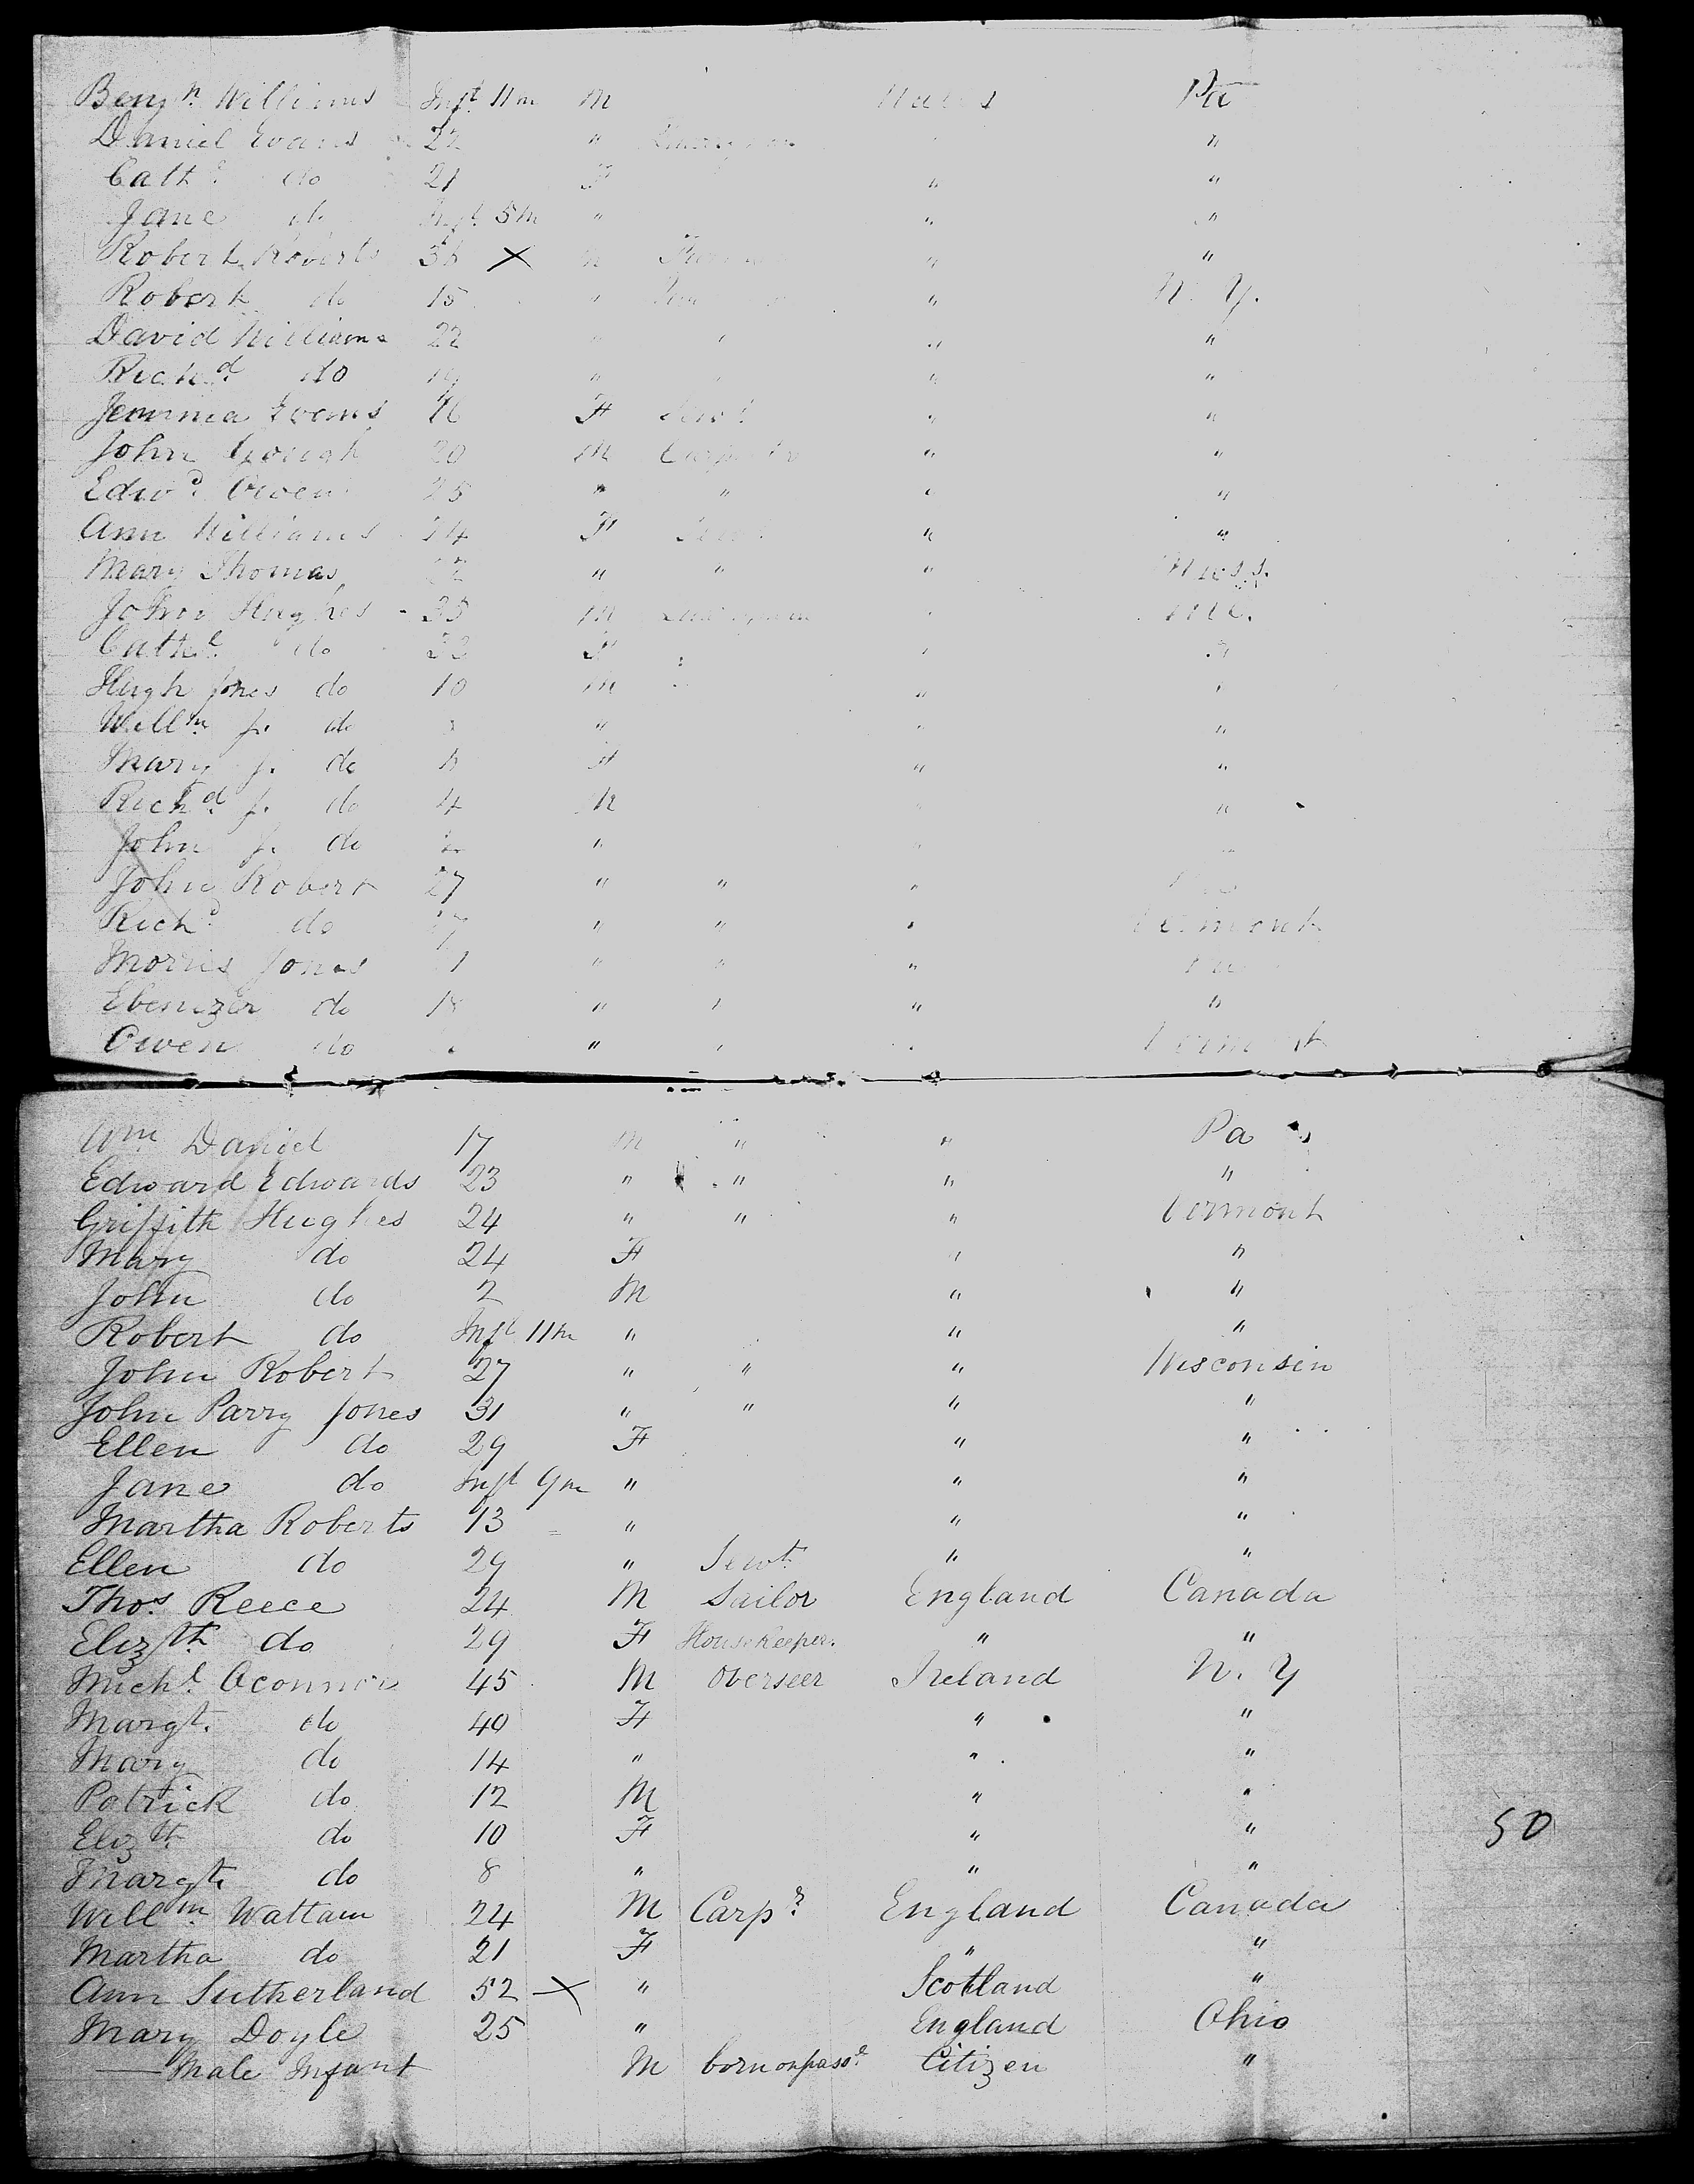 Benjn. Williams Inft. 11m M Wales Pa
Daniel Evans 22 " "
Cathe. do 21 F " "
Jane do Inft. 5m " " "
Robert Roberts X " "
Robert do 15 " " N. Y.
David Williams 22 " " " "
Richd. do " " " "
Jemima Evans F Servt. " "
John Gough 20 M " "
Edwd. Owen 25 " " " "
Ann Williams 24 F " "
Mary Thomas 22 " " "
John Hughes 35 M "
Cathe. do 33 F " "
Hugh Jones do 10 M " "
Willm. J. do " " "
Mary J. do F " "
Richd. J. do 4 M "
John J. do "
John Robert 27 " " "
Richd. do " " " Vermont
Morris Jones " " "
Ebenezer do 18 " " " "
Owen do " " " Vermont
Wm. Daniel 17 M " " Pa
Edward Edwards 23 " " " "
Griffith Hughes 24 " " " Vermont
Mary do 24 F " "
John do 2 M " "
Robert do Inft 11m " " "
John Robert 27 " " " Wisconsin
John Parry Jones 31 " " " "
Ellen do 29 F " "
Jane do Inft 9m " " "
Martha Roberts 13 " " "
Ellen do 29 " Servt. " "
Thos. Reece 24 M Sailor England Canada
Elizth. do 29 F Housekeeper. " "
Michl. Oconnor 45 M Overseer Ireland N. Y
Margt. do 40 F " "
Mary do 14 " " "
Patrick do 12 M " "
Elizth. do 10 F " " 50
Margt. do 8 " " "
Willm. Wattam 24 M Carpr. England Canada
Martha do 21 F " "
Ann Sutherland 52 X " Scotland "
Mary Doyle 25 " England Ohio
— Male Infant M born on passe. Citizen "